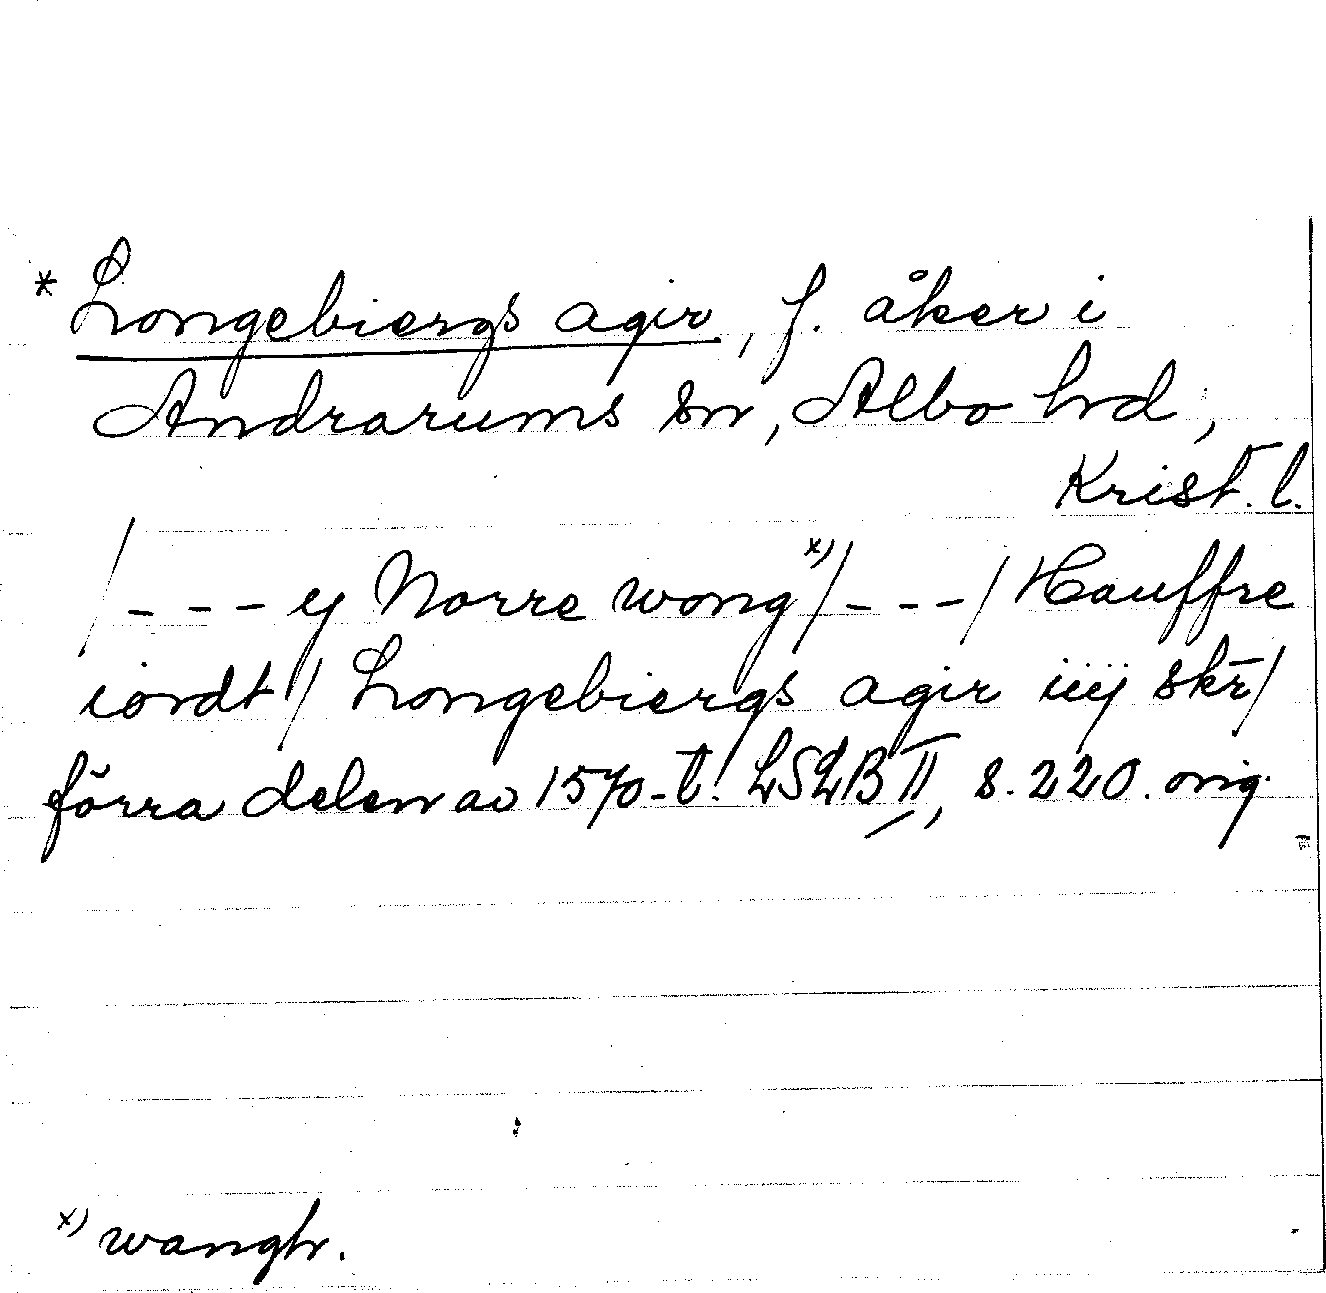 * Longebiergs agir, f. åker i
Andrarums sn, Albo hd,
Krist. l.
/---y Norre wong x)/---/ Hauffre
iordt/ Longebiergs agir iiij skr̄/
förra delen av 1570-t. LSLB II, s. 220. orig.
x) wangh.